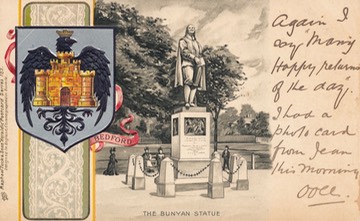 Again I
say "Many
Happy returns
of the day.
I had a
photo card
from Jean
this Morning
BEDFORD
THE BUNYAN STATUE